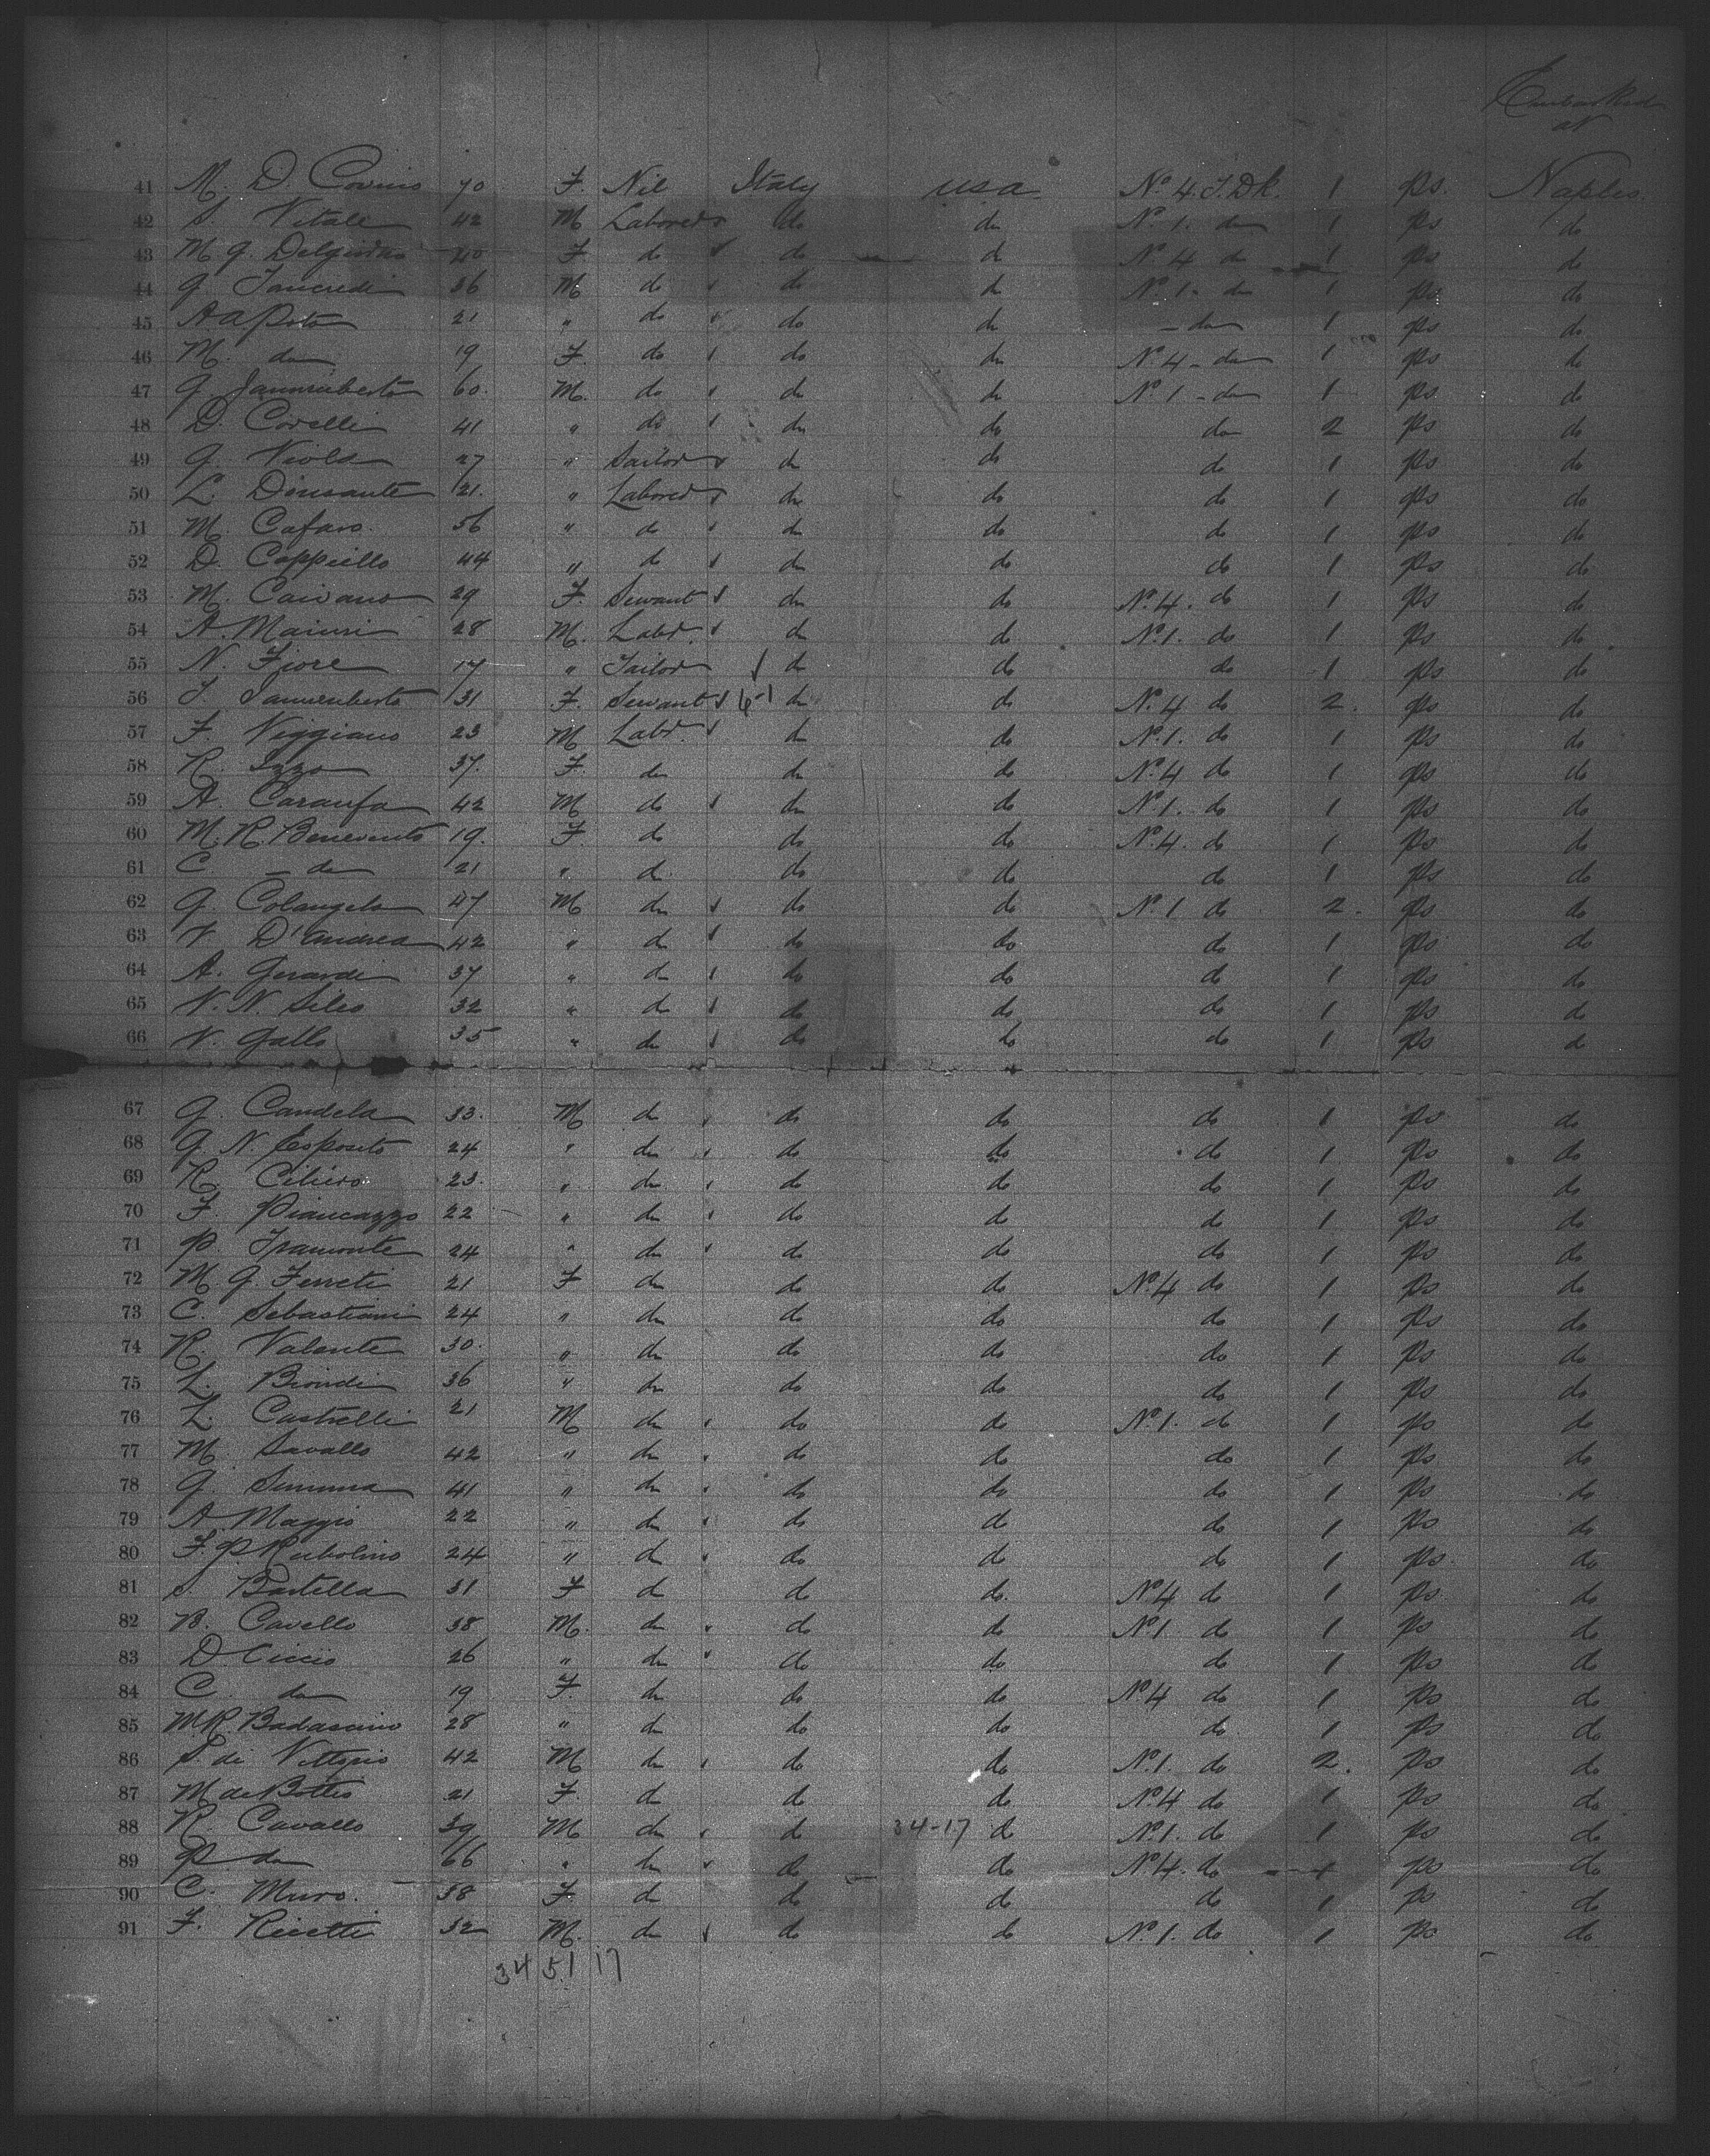 Embarked
at
41 M. D. Covino 70 F. Nil Italy USA No. 4. T. Dk. 1 ps. Naples.
42 S. Vitale 42 M Laborer do do No. 1. do 1 ps do
43 M G. 40 F. do do do No 4 do 1 ps do
44 G Tancredi 36 M do do do No. 1- do 1 ps do
45 A a Poto 21 " do do do - do 1 ps do
46 M. do 19 F. do do do No. 4 - do 1 ps do
47 G. 60. M. do do do No. 1 - do 1 ps do
48 D. Covelli 41 " do do do do 2 ps do
49 G. Viola 27 " do do do 1 ps do
50 L. Dinsante 21. " Laborer do do do 1 ps do
51 M. Cafaro. 56 " do do do do 1 ps do
52 D. Cappiello 44 " do do do do 1 ps do
53 M. Caivano 29 F. Servant do do No. 4. do 1 ps do
54 A. Maiuri 28 M. Labr. do do No. 1. do 1 ps do
55 N. Fiore 17 " Tailor do do do 1 ps do
56 31 F. Servant 6-1 do do No. 4 do 2. ps do
57 F. Viggiano 23 M Labr. do do No. 1. do 1 ps do
58 R. Izzo 37. F. do do do No. 4 do 1 ps do
59 A. Caraufa 42 M do do do No. 1. do 1 ps do
60 M. R. Benevento 19. F. do do do No. 4. do 1 ps do
61 C. - do 21 " do do do do 1 ps do
62 G. Colangelo 47 M do do do No. 1 do 2. ps do
63 V D'Andrea 42 " do do do do 1 ps do
64 A. Gerardi 37 " do do do do 1 ps do
65 V. N. Sileo 32 " do do do do 1 ps do
66 V. Gallo 35 " do do do do 1 ps do
67 G. Candela 33. M do do do do 1 ps do
68 G. N. Esposito 24 " do do do do 1 ps do
69 R. 23. " do do do do 1 ps do
70 F. Piancazzo 22 " do do do do 1 ps do
71 P. Tramonte 24 " do do do do 1 ps do
72 M. G. Ferreti 21 F do do do No 4 do 1 ps do
73 C. Sebastiani 24 " do do do do 1 ps do
74 R. Valente 30. " do do do do 1 ps do
75 L. Biondi 36 " do do do do 1 ps do
76 L. Castrelli 21 M do do do No. 1. do 1 ps do
77 M. Savallo 42 " do do do do 1 ps do
78 G. Simma 41 " do do do do 1 ps do
79 A Maggio 22 " do do do do 1 ps do
80 F. P. 24 " do do do do 1 ps do
81 S. Bartella 31 F do do do. No 4 do 1 ps do
82 B. Cavello 38 M. do do do No 1 do 1 ps do
83 D. Ciccio 26 " do do do do 1 ps do
84 C. do 19 F. do do do No 4 do 1 ps do
85 M.R. Badascino 28 " do do do do 1 ps do
86 S. di Vittorio 42 M do do do No. 1. do 2. ps do
87 M de Bottis 21 F. do do do No 4 do 1 ps do
88 R. Cavallo 39 M do do 34-17 do No. 1. do 1 ps do
89 P. do 66 " do do do No 4. do 1 ps do
90 C. Muro. 38 F do do do do 1 ps do
91 F. Ricetti 32 M. do do do No. 1. do 1 ps do
34 51 17